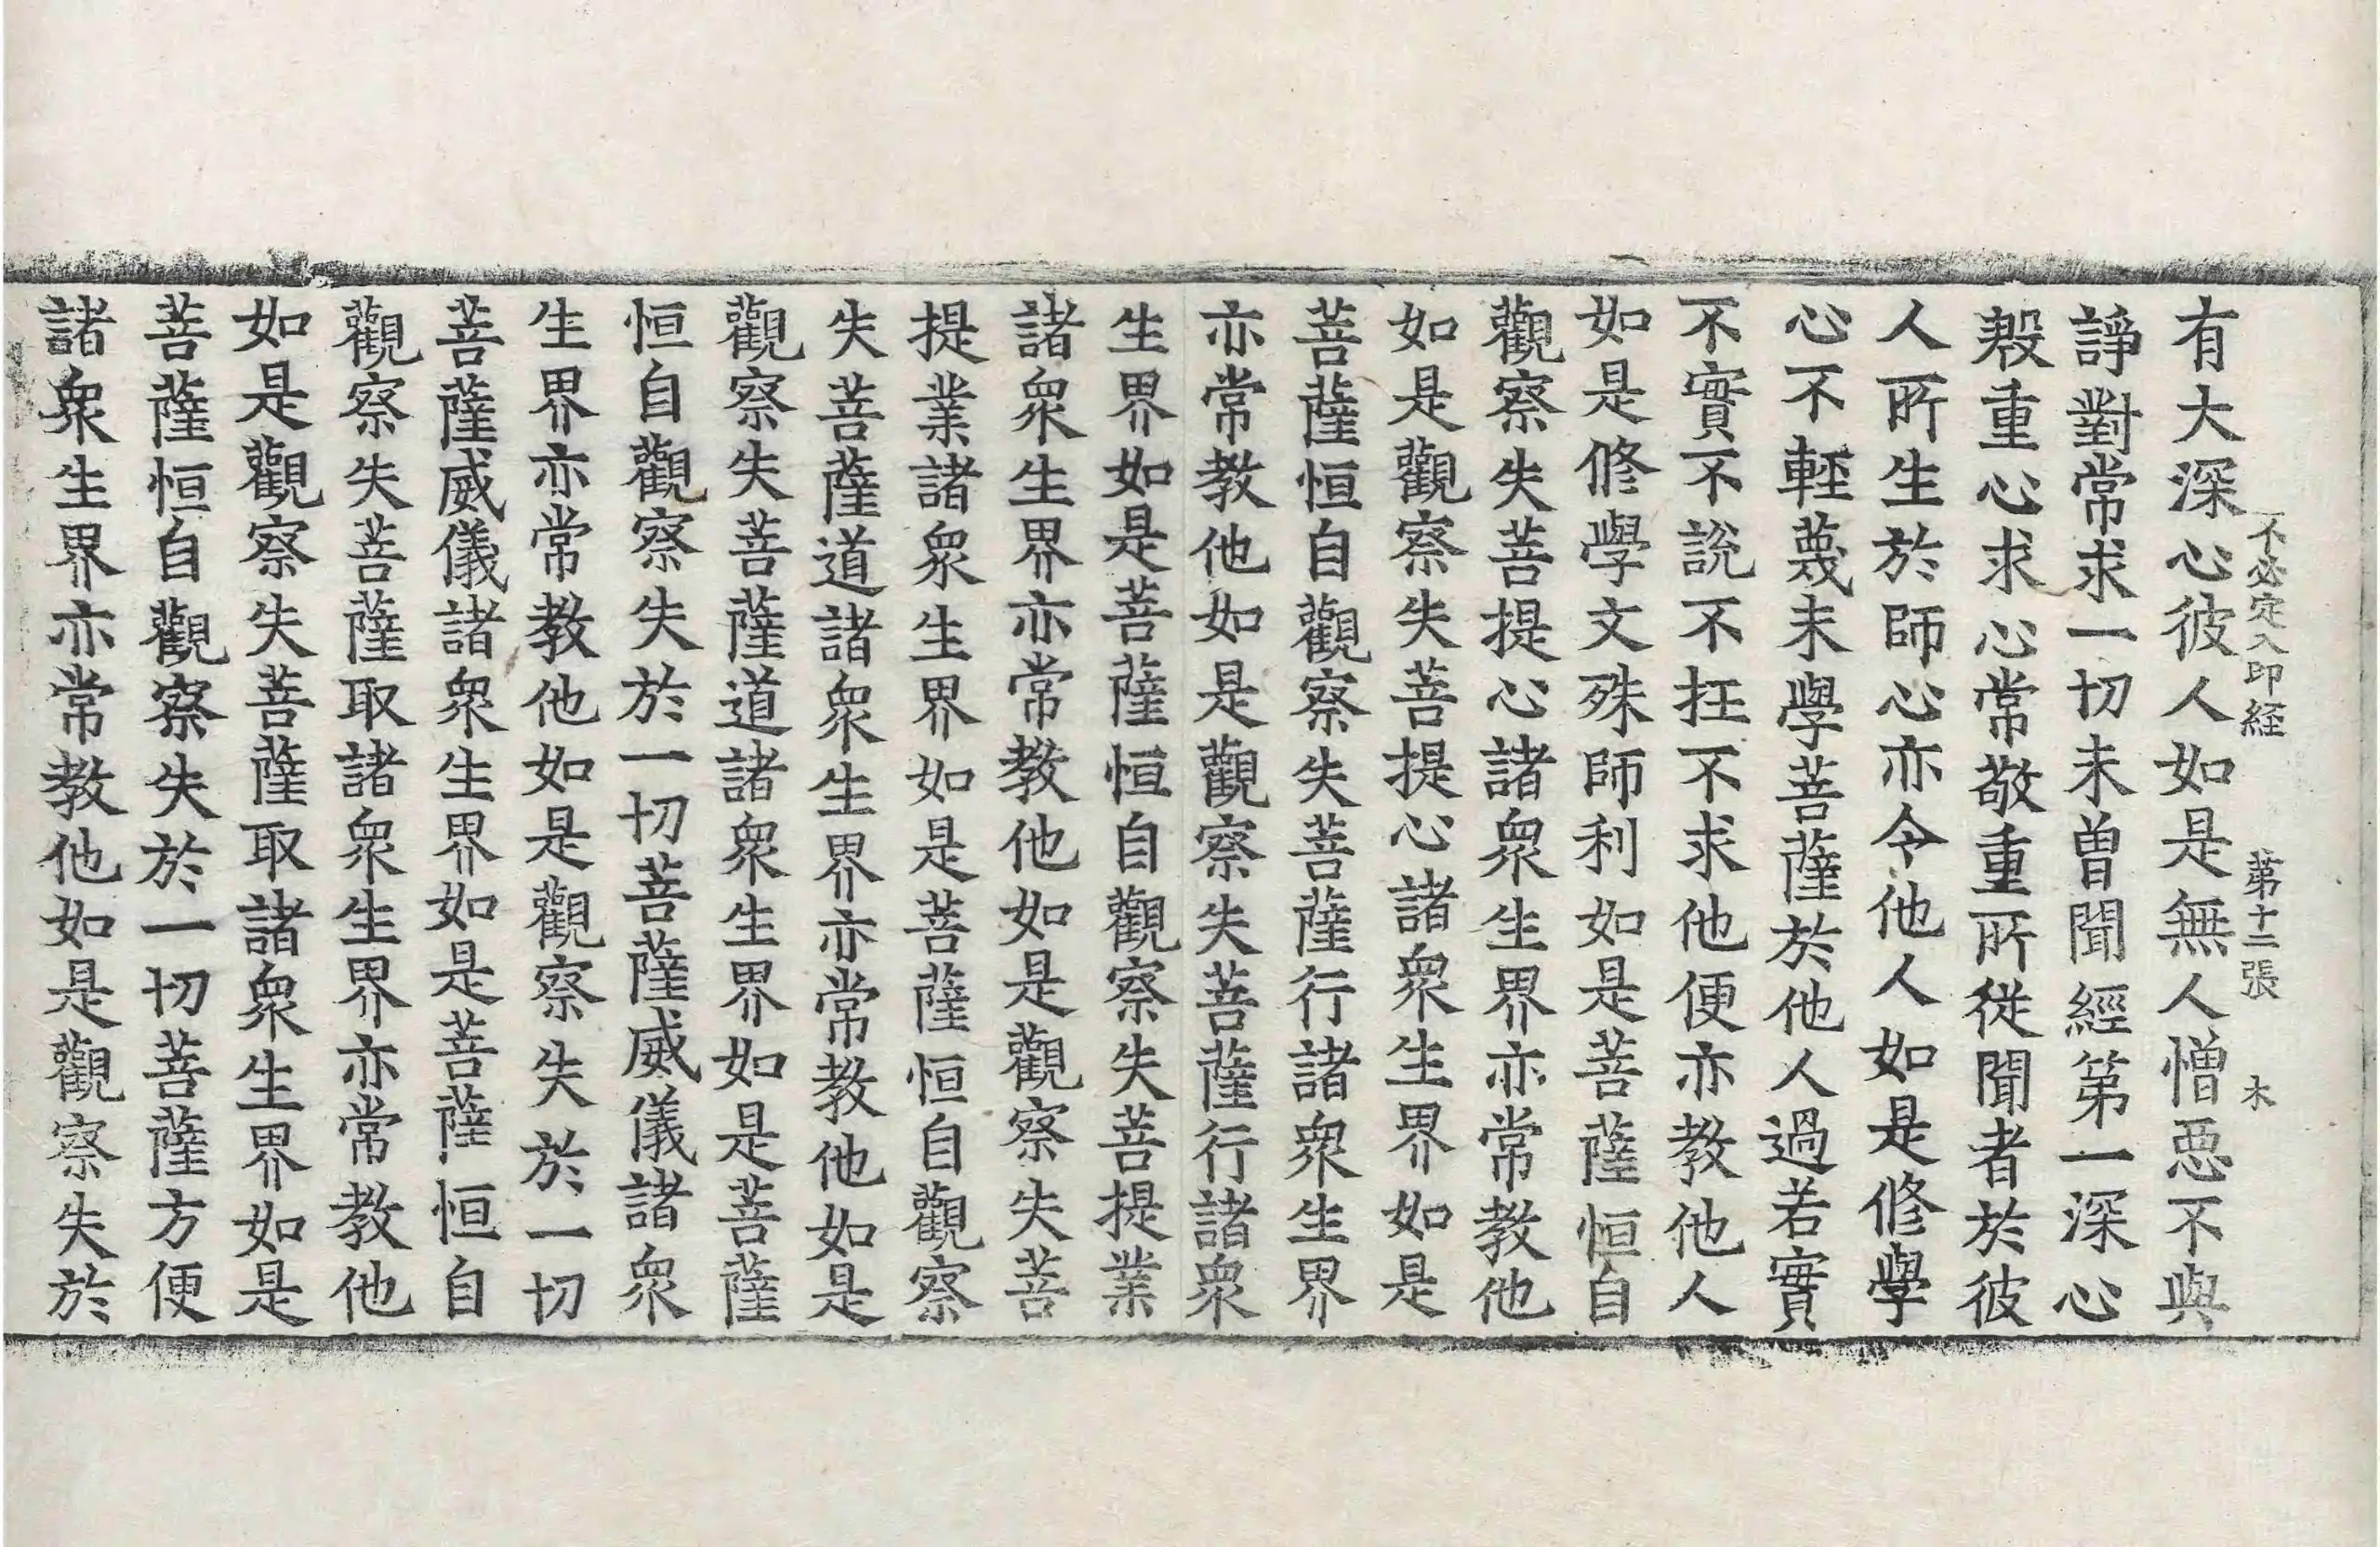 不必定入印経　第十二張　木
有大深心彼人如是無人憎惡不與
諍對常求一切未曽聞經第一深心
殷重心求心常敬重所従聞者於彼
人所生於師心亦令他人如是修學
心不輕蔑未學菩薩於他人過若實
不實不說不抂不求他便亦教他人
如是修學文殊師利如是菩薩恒自
觀察失菩提心諸衆生界亦常教他
如是觀察失菩提心諸衆生界如是
菩薩恒自觀察失菩薩行諸衆生界
亦常教他如是觀察失菩薩行諸衆
生界如是菩薩恒自觀察失菩提業
諸衆生界亦常教他如是觀察失菩
提業諸衆生界如是菩薩恒自觀察
失菩薩道諸衆生界亦常教他如是
觀察失菩薩道諸衆生界如是菩薩
恒自觀察失於一切菩薩威儀諸衆
生界亦常教他如是觀察失於一切
菩薩威儀諸衆生界如是菩薩恒自
觀察失菩薩取諸衆生界亦常教他
如是觀察失菩薩取諸衆生界如是
菩薩恒自觀察失於一切菩薩方便
諸衆生界亦常教他如是觀察失於